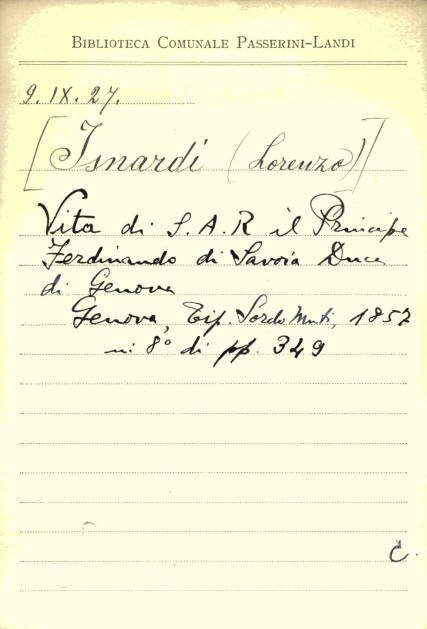 BIBLIOTECA COMUNALE PASSERINI-LANDI
9. IX. 27.
[Isnardi (Lorenzo)]
Vita di S. A. R il Principe
Ferdinando di Savoia Duca
di Genova
Genova, Tip. Sordo Muti, 1857
in 8° di pp. 349
C.